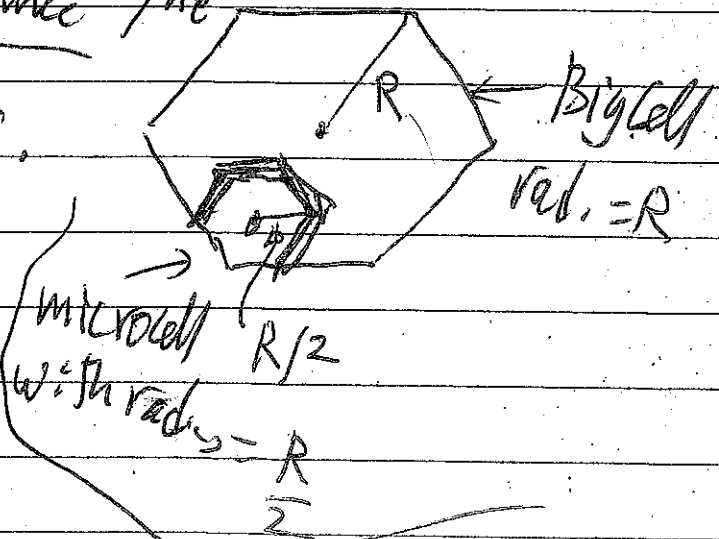 R
Big Cell
rad. = R
microcell
R/2
with rad. = R/2